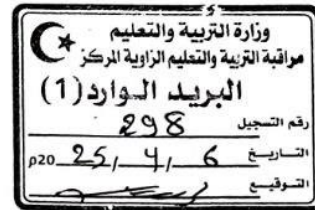 وزارة التربية والتعليم
مراقبة التربية والتعليم الزاوية المركز
البريد الوارد (1)
رقم التسجيل 298
التاريخ 6 / 4 / 25 20م
التوقيع